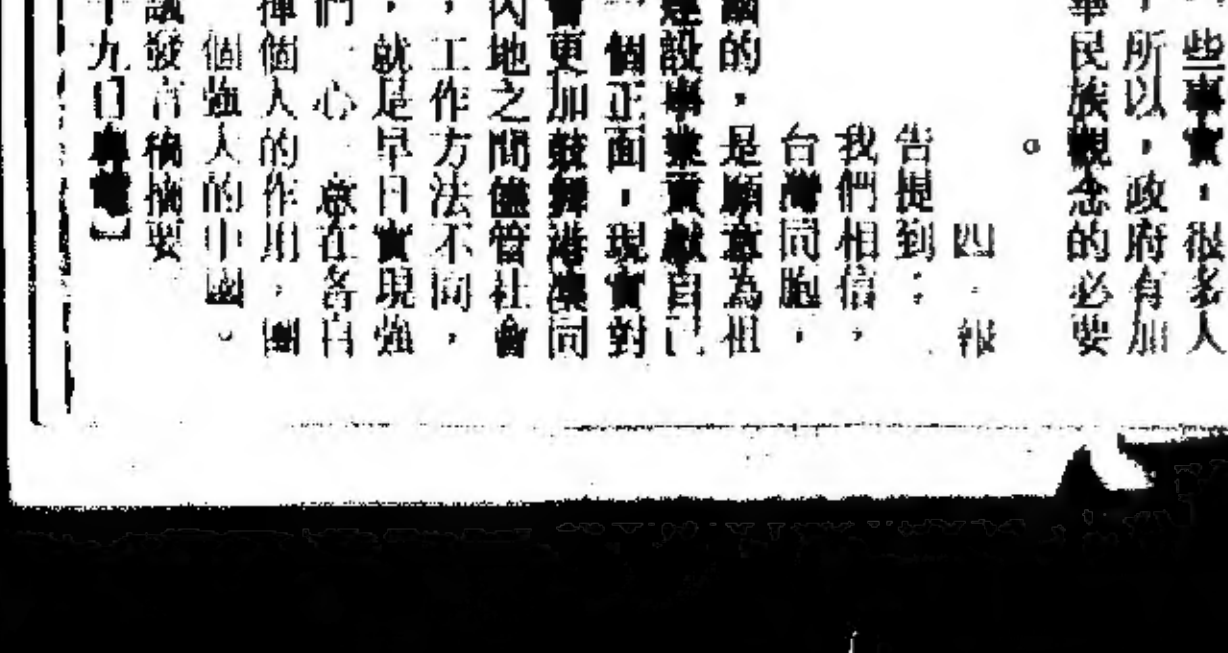 一些事實,很多人
,所以,政府有加
華民族觀念的必要
。
四、報
告提到:
我們相信,
台灣同胞,
國的,是願意為祖
建設事業貢獻自己
一個正面,現實對
會更加鼓舞港澳同
內地之間儘管社會
,工作方法不同,
,就是早日實現強
們一心一意在各自
揮個人的作用,團
個強大的中國。
議發言稿摘要
十九日專電】